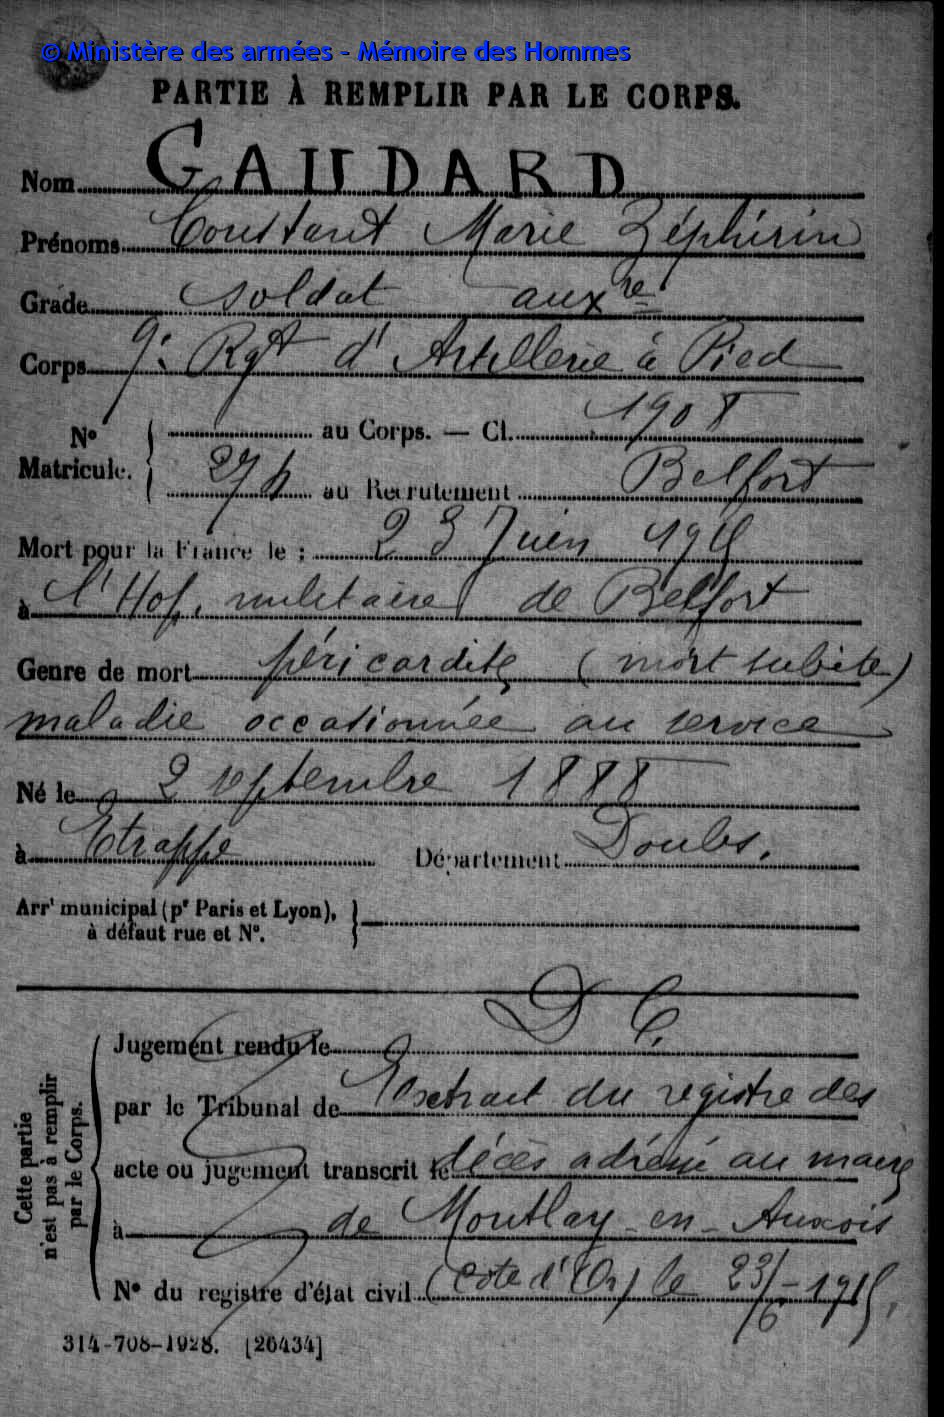 © Ministère des armées - Mémoire des Hommes
PARTIE À REMPLIR PAR LE CORPS.
Nom GAUDARD
Prénoms Constant Marie Zéphirin
Grade soldat auxre
Corps 9e Rgt d'Artillerie à Pied
No Matricule. au Corps. — Cl. 1908
274 au Recrutement Belfort
Mort pour la France le : 23 Juin 1915
à l'Hop. militaire de Belfort
Genre de mort péricardite (mort subite)
maladie occasionnée au service
Né le 2 septembre 1888
à Etrappe Département Doubs.
Arrt municipal (pr Paris et Lyon),
à défaut rue et No.
D C.
Cette partie
n'est pas à remplir
par le Corps.
Jugement rendu le
par le Tribunal de Extrait du registre des
acte ou jugement transcrit le décès adressé au maire
à de Montlay-en-Auxois
No du registre d'état civil (Côte d'Or) le 23/6-1915.
314-708-1928. [26434]